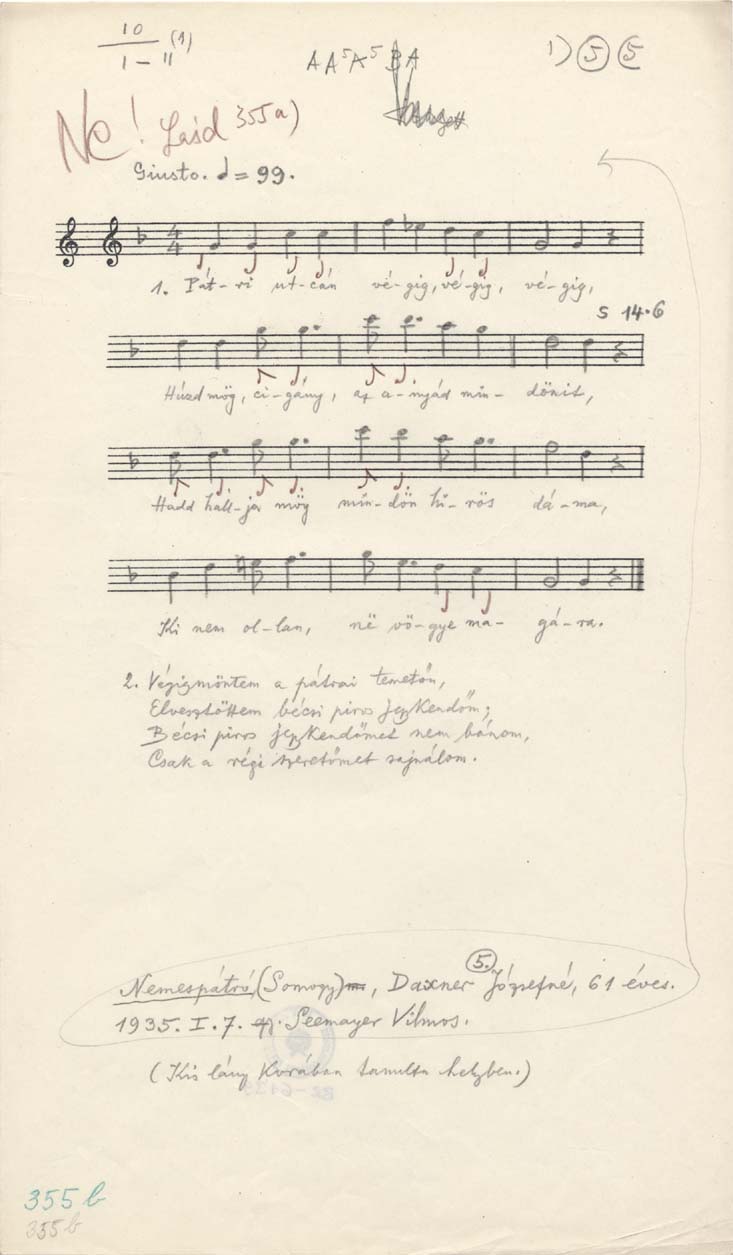 10 (1)
I – II
A A⁵ A⁵ B A
1) 5 5
Ne! Lásd 355a)
Giusto. = 99.
4
4
1. Pát-ri ut-cán vé-gig, vé-gig, vé-gig,
S 14.6
Húzd mög, ci-gány, az a-nyád min- dönit,
Hadd hall-ja mög min-dön hi-rös dá-ma,
Ki nem ol-lan, në vö-gye ma- gá-ra.
2. Végigmöntem a pátrai temetőn,
Elvesztöttem bécsi piros jezkendőm;
Bécsi piros jezkendőmet nem bánom,
Csak a régi szeretőmet sajnálom.
5.
Nemespátró (Somogy), Daxner Józsefné, 61 éves.
1935. I. 7. gy. Seemayer Vilmos.
(Kis lány korában tanulta helyben.)
355 b
355 b